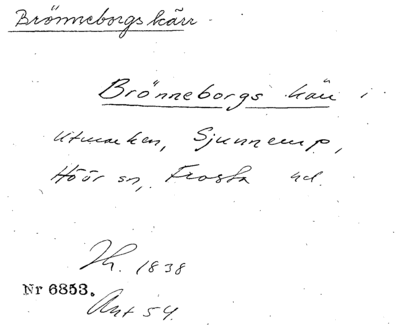 Brönneborgs kärr
Brönneborgs kärr i
utmarken, Sjunnerup,
Höör sn, Frosta hd.
Th. 1838
Nr 6853.
Ant 54.